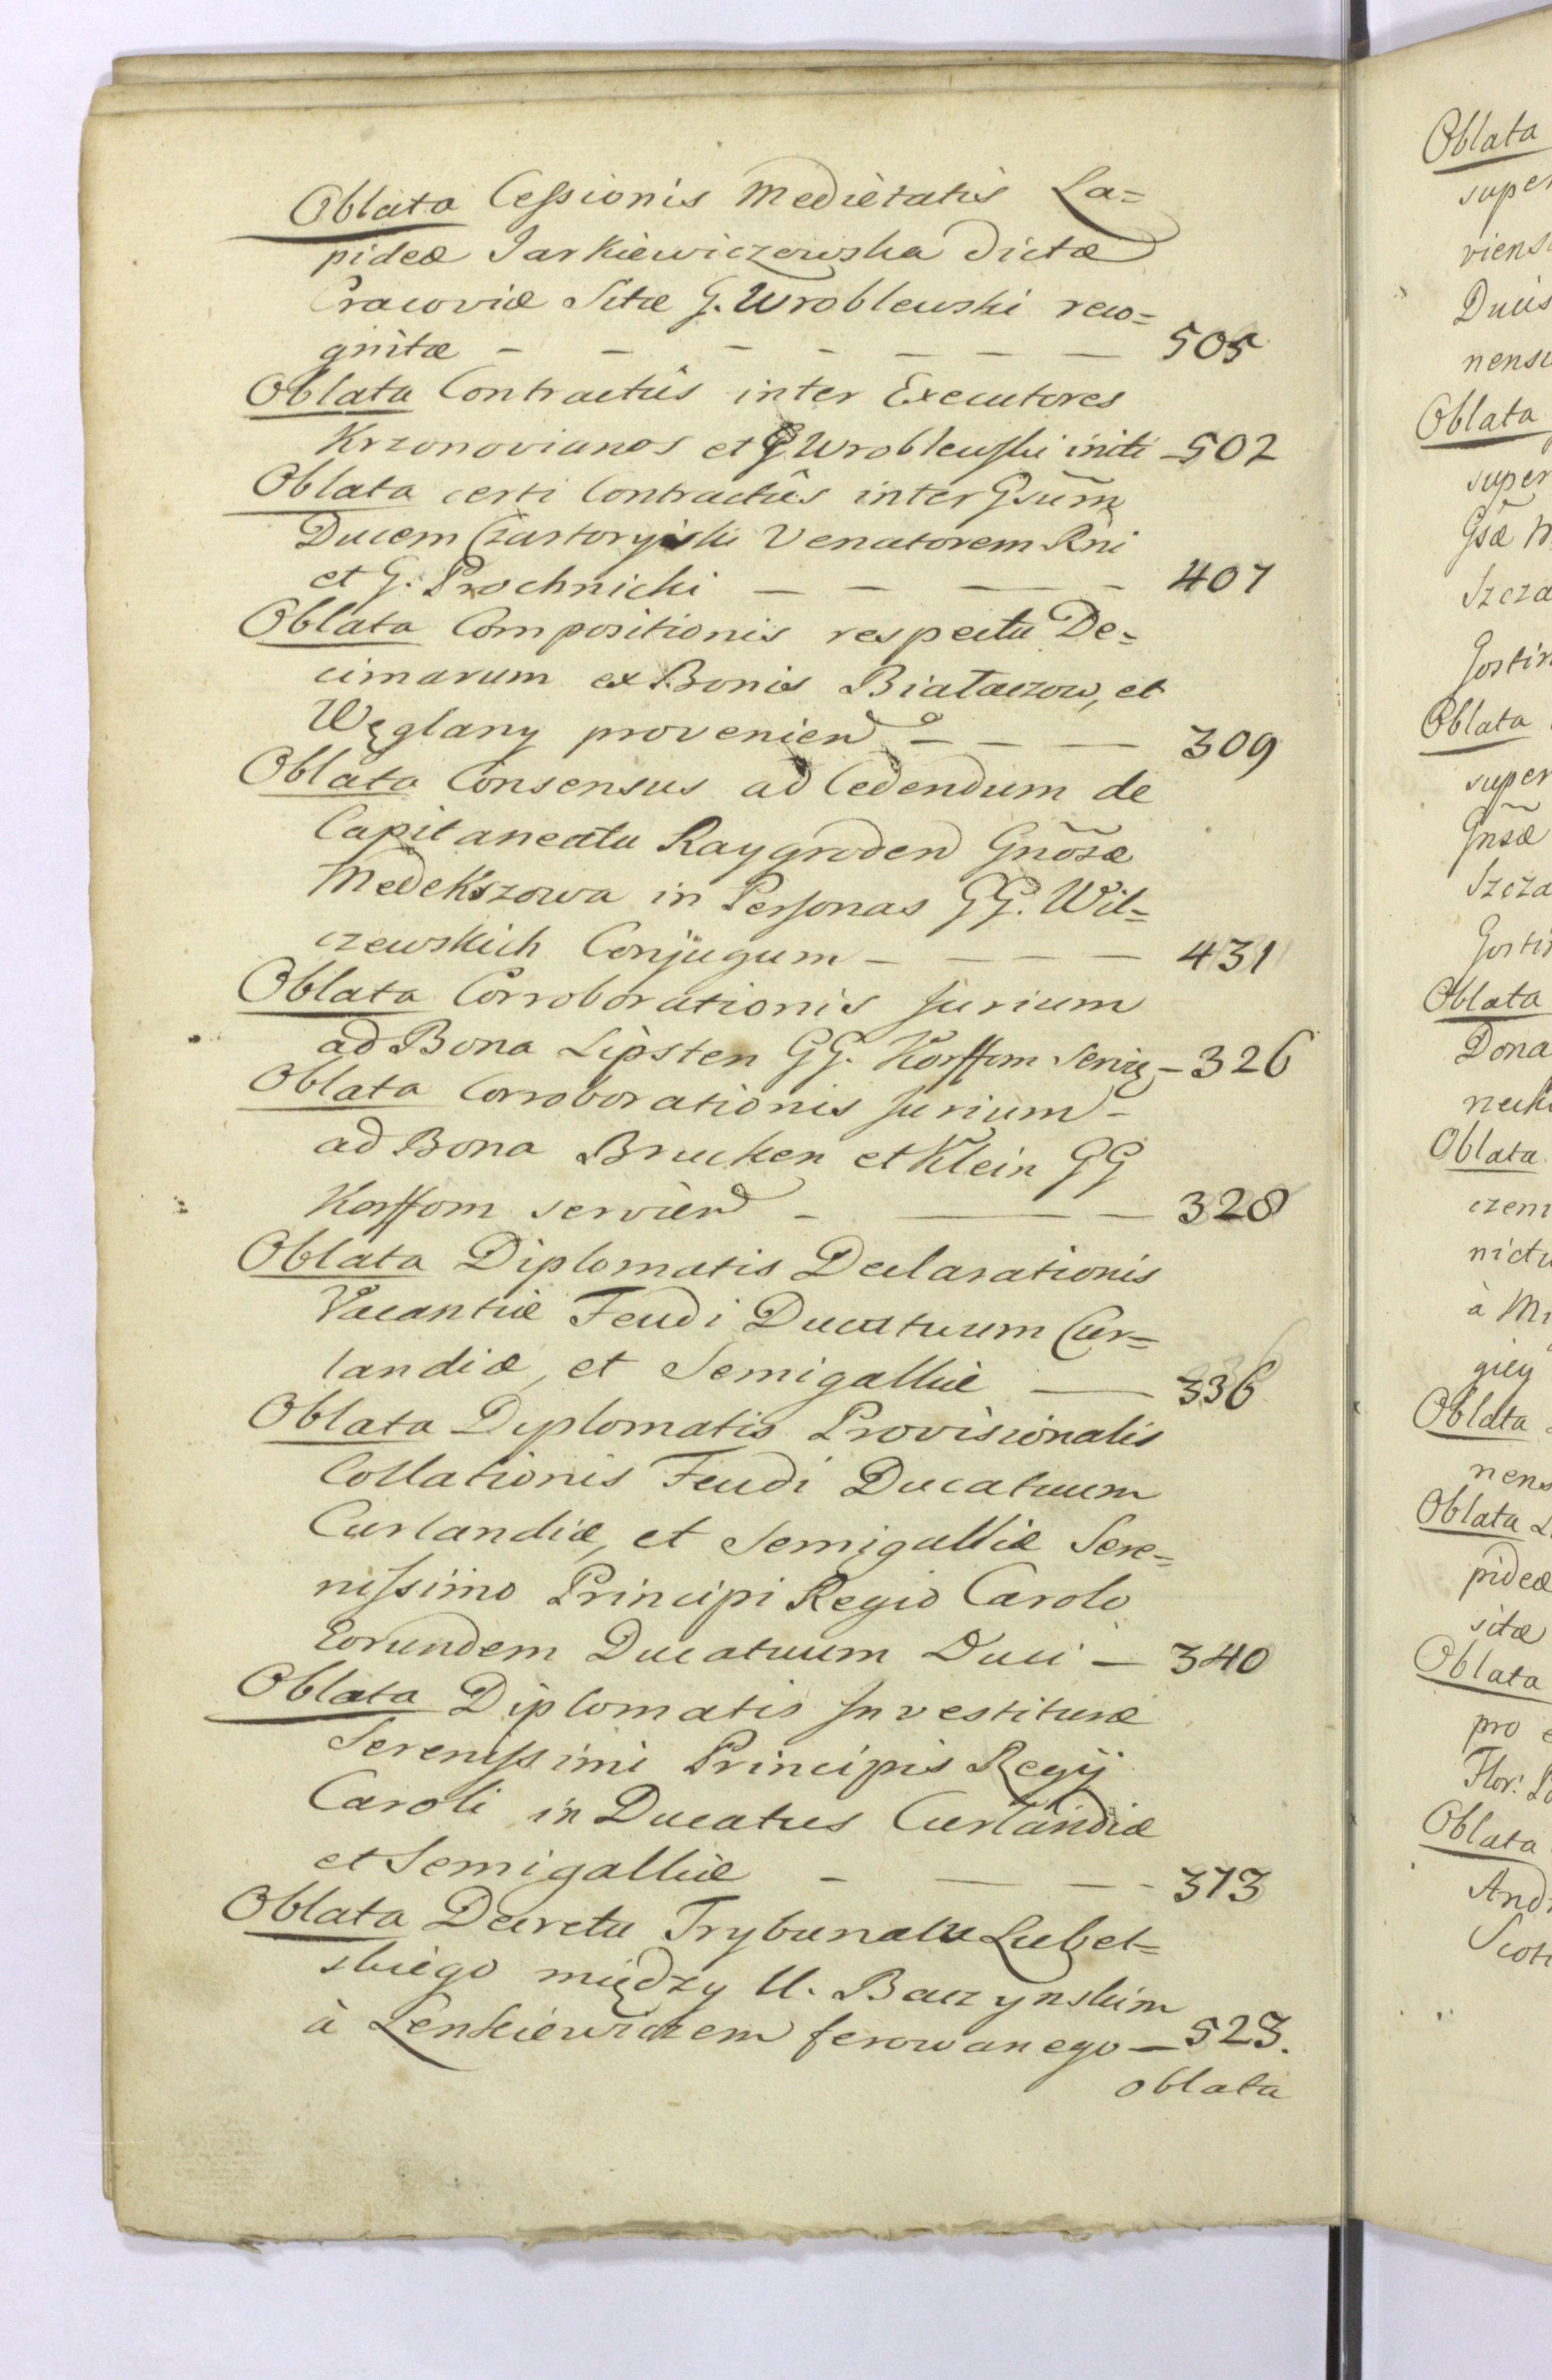 Oblata Cessionis Medietatis La=
pideæ Jarkiewiczowska dictæ
Cracoviæ Sitæ G. Wroblewski reco=
gnitæ — — — — — — — 505
Oblata Contractûs inter Executores
Krzonovianos et G Wroblewski initi — 502
Oblata certi Contractûs inter Gsum̃
Ducem Czartoryiski Venatorem Rni
et G. Prochnicki — — — — 407
Oblata Compositionis respectu De=
cimarum ex Bonis Białaczow, et
Węglany proveniend — — — 309
Oblata Consensus ad Cedendum de
Capitaneatu Raygroden Gnõsæ
Medekszowa in Personas GG. Wil=
czewskich Conjugum — — — — 431
Oblata Corroborationis Jurium
ad Bona Lipsten GG. Korffom serviẽ — 326
Oblata Corroborationis Jurium —
ad Bona Brucken et Klein GG
Korffom serviend — — — — 328
Oblata Diplomatis Declarationis
Vacantiæ Feudi Ducatuum Cur=
landiæ, et Semigalliæ — 336
Oblata Diplomatis Provisionalis
Collationis Feudi Ducatuum
Curlandiæ, et Semigalliæ Sere=
nissimo Principi Regio Carolo
Eorundem Ducatuum Duci — 340
Oblata Diplomatis Investituræ
Serenissimi Principis Regij
Caroli in Ducatus Curlandiæ
et Semigalliæ — — — — 373
Oblata Decretu Trybunalu Lubel=
skiego między U. Baczynskim
à Lenkiewiczem ferowanego — 523.
oblata
Oblata
super
viens
Ducis
nens
Oblata
super
Gsæ
Szcza
Gostin
Oblata
super
Gnsæ
Szcza
Gosti
Oblata
Dona
Oblata
nictu
à
giey
Oblata
nens
Oblata
pideæ
sitæ
Oblata
pro
Flor:
Oblata